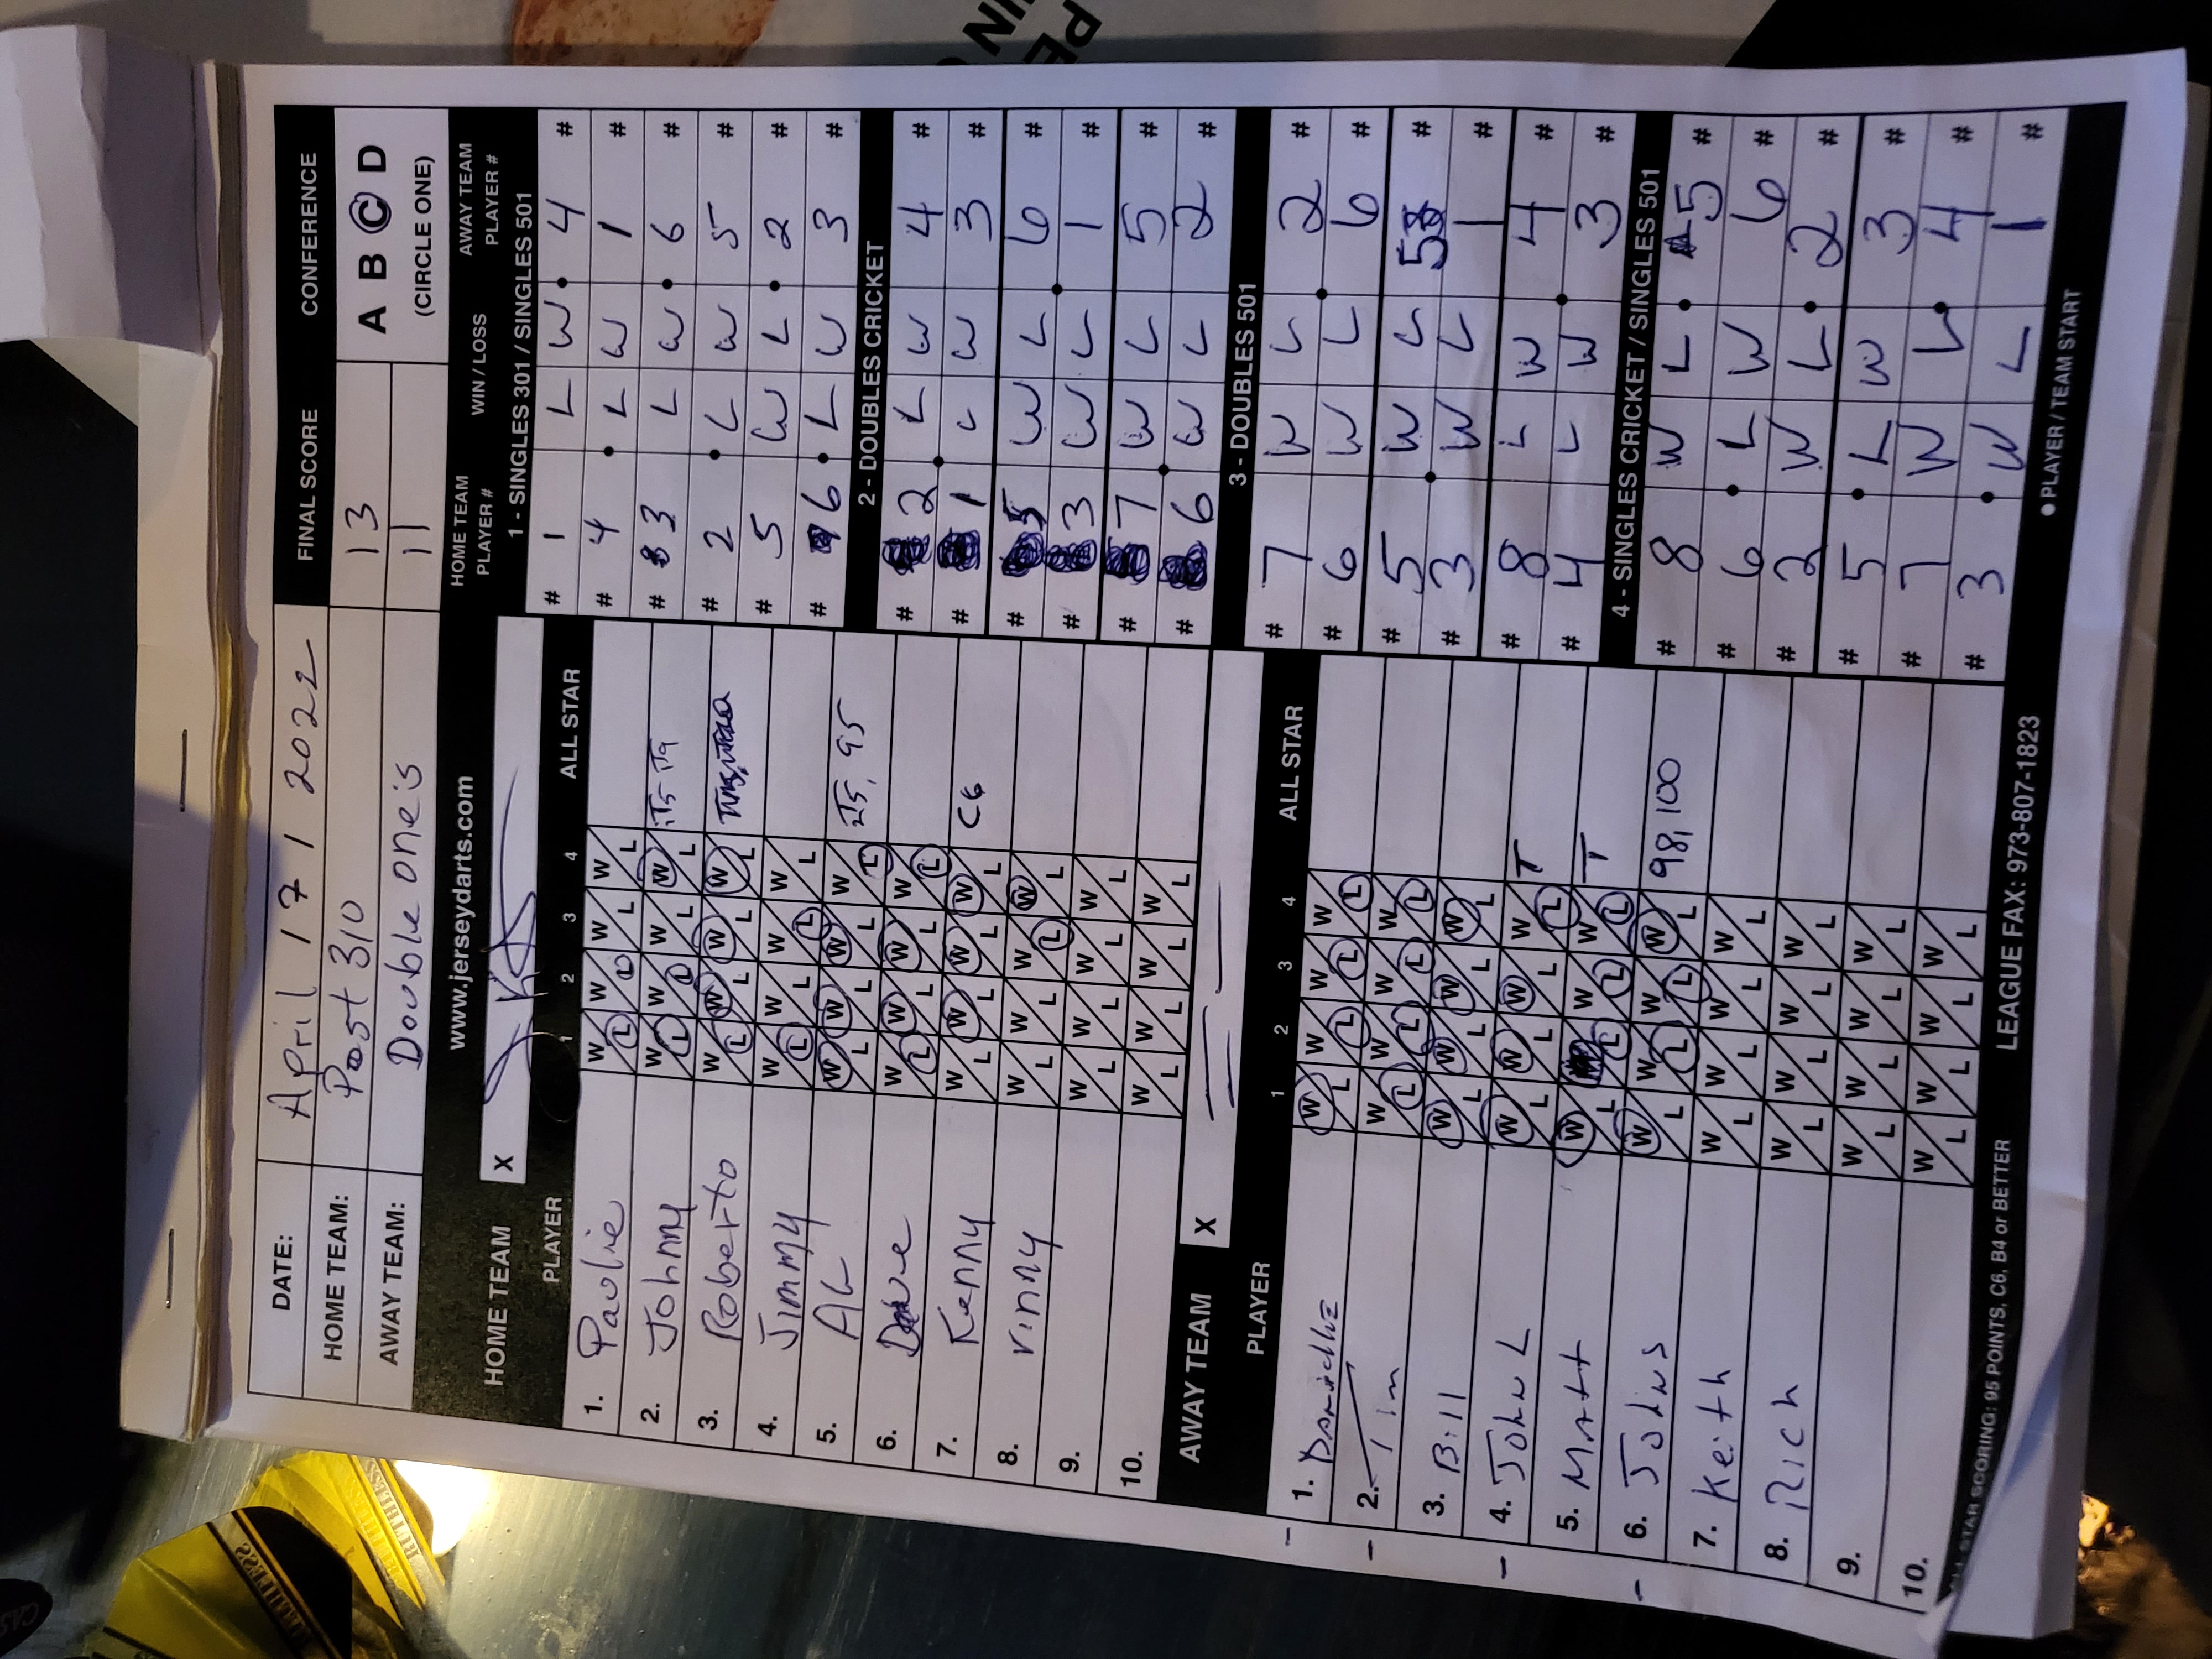 DATE: April 17 / 2022 FINAL SCORE CONFERENCE
HOME TEAM: Post 310 13 A B C D
AWAY TEAM: Double one's 11 (CIRCLE ONE)
www.jerseydarts.com
HOME TEAM X
PLAYER 1 2 3 4 ALL STAR
1. Paulie W L W L W L W L
2. Johnny W L W L W L W L
3. Roberto W L W L W L W L
4. Jimmy W L W L W L W L
5. AL W L W L W L W L 95
6. Dave W L W L W L W L
7. Kenny W L W L W L W L C6
8. Vinny W L W L W L W L
9. W L W L W L W L
10. W L W L W L W L
AWAY TEAM X
PLAYER 1 2 3 4 ALL STAR
1. W L W L W L W L
2. Tim W L W L W L W L
3. Bill W L W L W L W L
4. John L W L W L W L W L T
5. Matt W L L W L W L T
6. John S W L W L W L W L 98, 100
7. Keith W L W L W L W L
8. Rich W L W L W L W L
9. W L W L W L W L
10. W L W L W L W L
STAR SCORING: 95 POINTS, C6, B4 or BETTER LEAGUE FAX: 973-807-1823
HOME TEAM PLAYER # WIN / LOSS AWAY TEAM PLAYER #
1 - SINGLES 301 / SINGLES 501
# 1 L W 4 #
# 4 L W 1 #
# 3 L W 6 #
# 2 L W 5 #
# 5 W L 2 #
# 6 L W 3 #
2 - DOUBLES CRICKET
# 2 L W 4 #
# 1 L W 3 #
# 5 W L 6 #
# 3 W L 1 #
# 7 W L 5 #
# 6 W L 2 #
3 - DOUBLES 501
# 7 W L 2 #
# 6 W L 6 #
# 5 W L 5 #
# 3 W L 1 #
# 8 L W 4 #
# 4 L W 3 #
4 - SINGLES CRICKET / SINGLES 501
# 8 W L 5 #
# 6 L W 6 #
# 2 W L 2 #
# 5 L W 3 #
# 7 W L 4 #
# 3 W L 1 #
● PLAYER / TEAM START
RUTHLESS